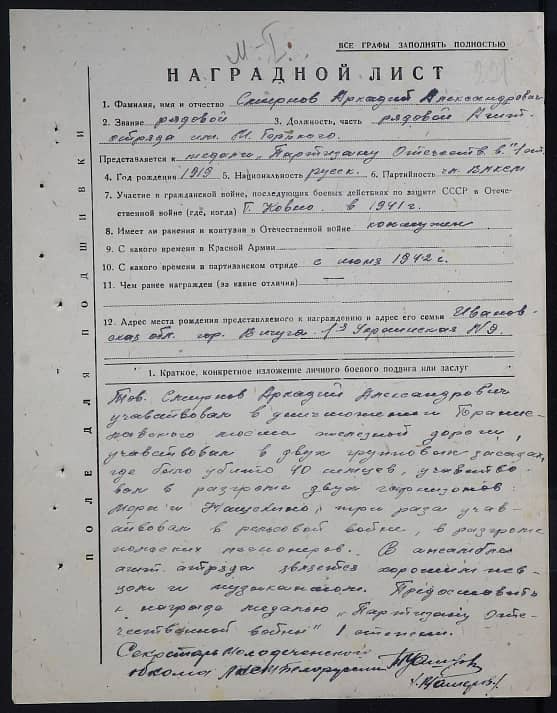 М-I.
ВСЕ ГРАФЫ ЗАПОЛНЯТЬ ПОЛНОСТЬЮ
НАГРАДНОЙ ЛИСТ
1. Фамилия, имя и отчество Смирнов Аркадий Александрович
2. Звание рядовой 3. Должность, часть рядовой Агит.
отряда им. М. Горького.
Представляется к медали „Партизану Отечеств. в." 1 ст.
4. Год рождения 1919 5. Национальность русск. 6. Партийность чл. ВЛКСМ
7. Участие в гражданской войне, последующих боевых действиях по защите СССР в Отече-
ственной войне (где, когда) г. Ковно в 1941 г.
8. Имеет ли ранения и контузии в Отечественной войне контужен
9. С какого времени в Красной Армии
10. С какого времени в партизанском отряде с июня 1942 г.
11. Чем ранее награжден (за какие отличия)
12. Адрес места рождения представляемого к награждению и адрес его семьи Иванов-
ская обл. гор. Вичуга
1. Краткое, конкретное изложение личного боевого подвига или заслуг
Тов. Смирнов Аркадий Александрович
учавствовал в
моста железной дороги,
учавствовал в двух групповых засадах,
где было убито 40 немцев, учавство-
вал в разгроме двух гарнизонов
и три раза учав-
ствовал в рельсовой войне, в разгроме
польских В ансамбле
агит. отряда является хорошим пев-
цом и музыкантом. Представить
к награде медалью „Партизану Оте-
чественной войны" I степени.
Секретарь Молодеченского
обкома ЛКСМ Белоруссии
ПОЛЕ ДЛЯ ПОДШИВКИ